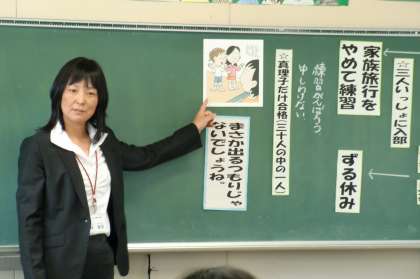 ☆三人いっしょに入部
家族旅行を
やめて練習
ずる休み
練習がんばろう
申しわけない
☆真理子だけ合格(三十人の中の一人)
まさか出るつもりじゃ
ないでしょうね。